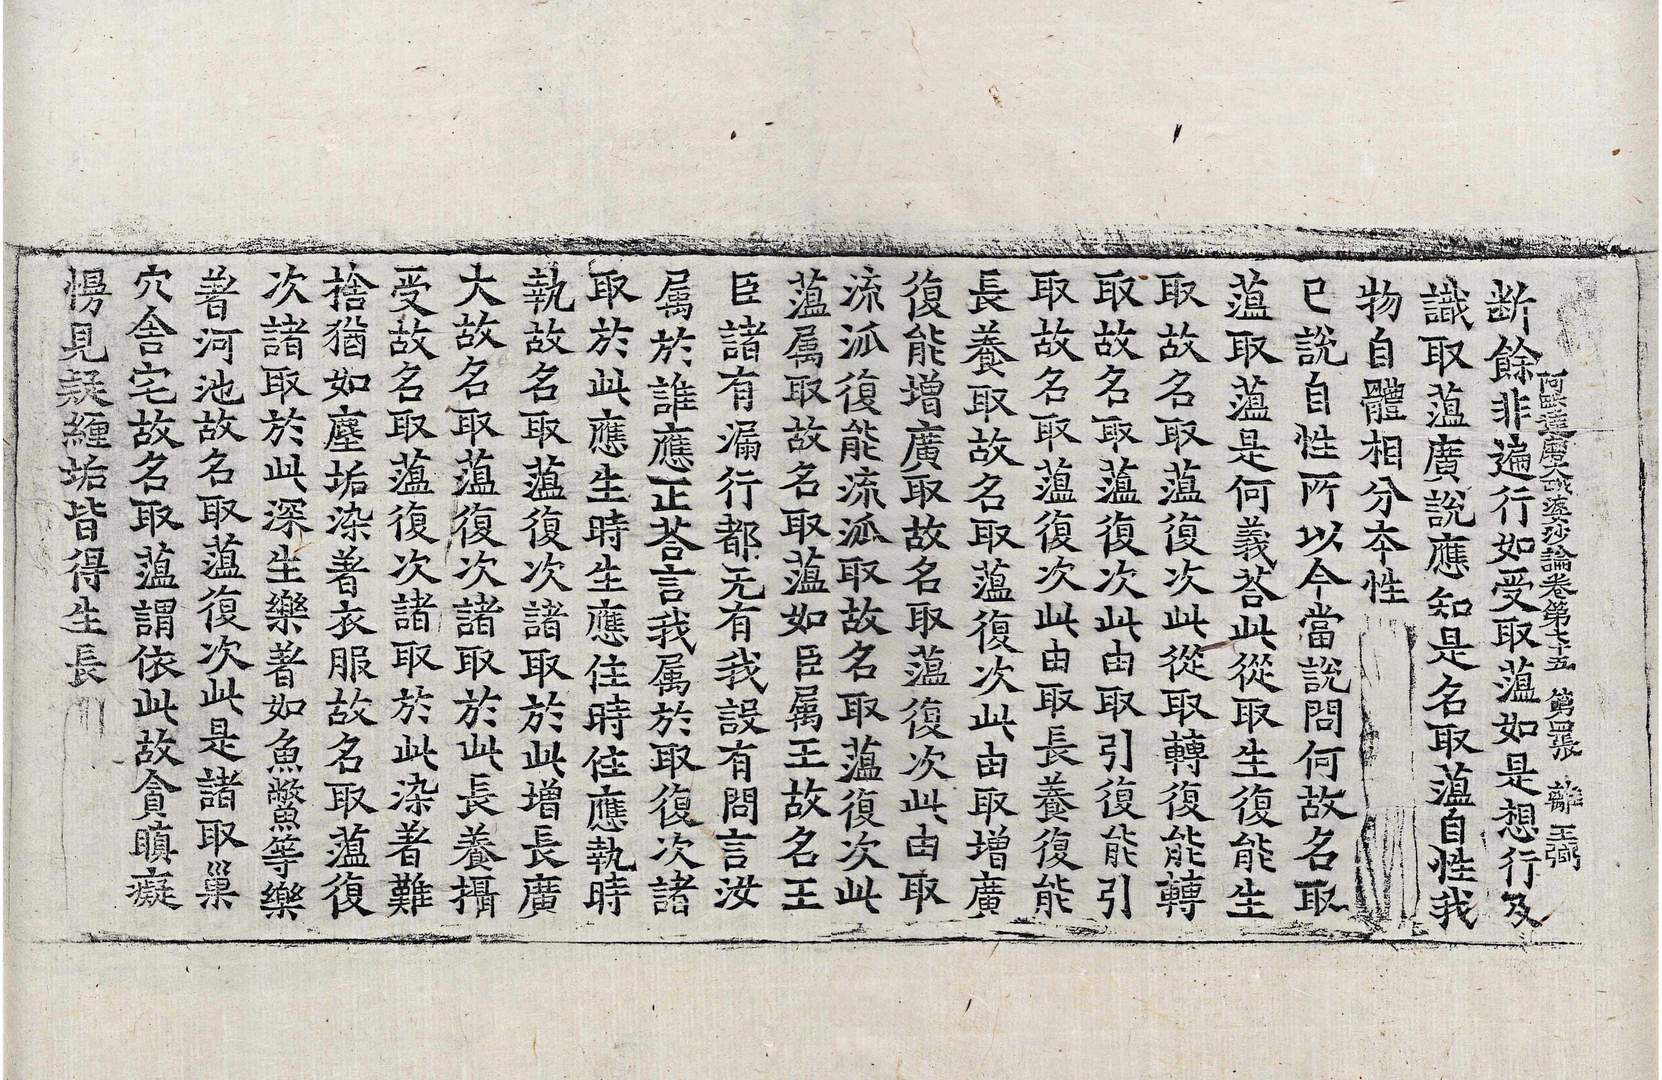 阿毗達磨大毗婆沙論卷第七十五 第四張 離 王弼
断餘非遍行如受取薀如是想行及
識取薀廣說應知是名取薀自性我
物自體相分本性
已說自性所以今當說問何故名取
薀取薀是何義荅此從取生復能生
取故名取薀復次此從取轉復能轉
取故名取薀復次此由取引復能引
取故名取薀復次此由取長養復能
長養取故名取薀復次此由取增廣
復能增廣取故名取薀復次此由取
流泒復能流泒取故名取薀復次此
薀属取故名取薀如臣屬王故名王
臣諸有漏行都无有我設有問言汝
属於誰應正荅言我属於取復次諸
取於此應生時生應住時住應執時
執故名取薀復次諸取於此增長廣
大故名取薀復次諸取於此長養攝
受故名取薀復次諸取於此染著難
捨猶如塵垢染著衣服故名取薀復
次諸取於此深生樂著如魚鼈等樂
著河池故名取薀復次此是諸取巢
穴舍宅故名取薀謂依此故貪瞋癡
慢見疑纏垢皆得生長